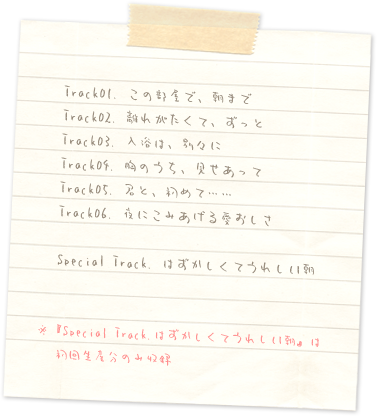 Track01. この部屋で、朝まで
Track02. 離れがたくて、ずっと
Track03. 入浴は、別々に
Track04. 胸のうち、見せあって
Track05. 君と、初めて……
Track06. 夜にこみあげる愛おしさ
Special Track. はずかしくてうれしい朝
※『Special Track.はずかしくてうれしい朝』は
初回生産分のみ収録